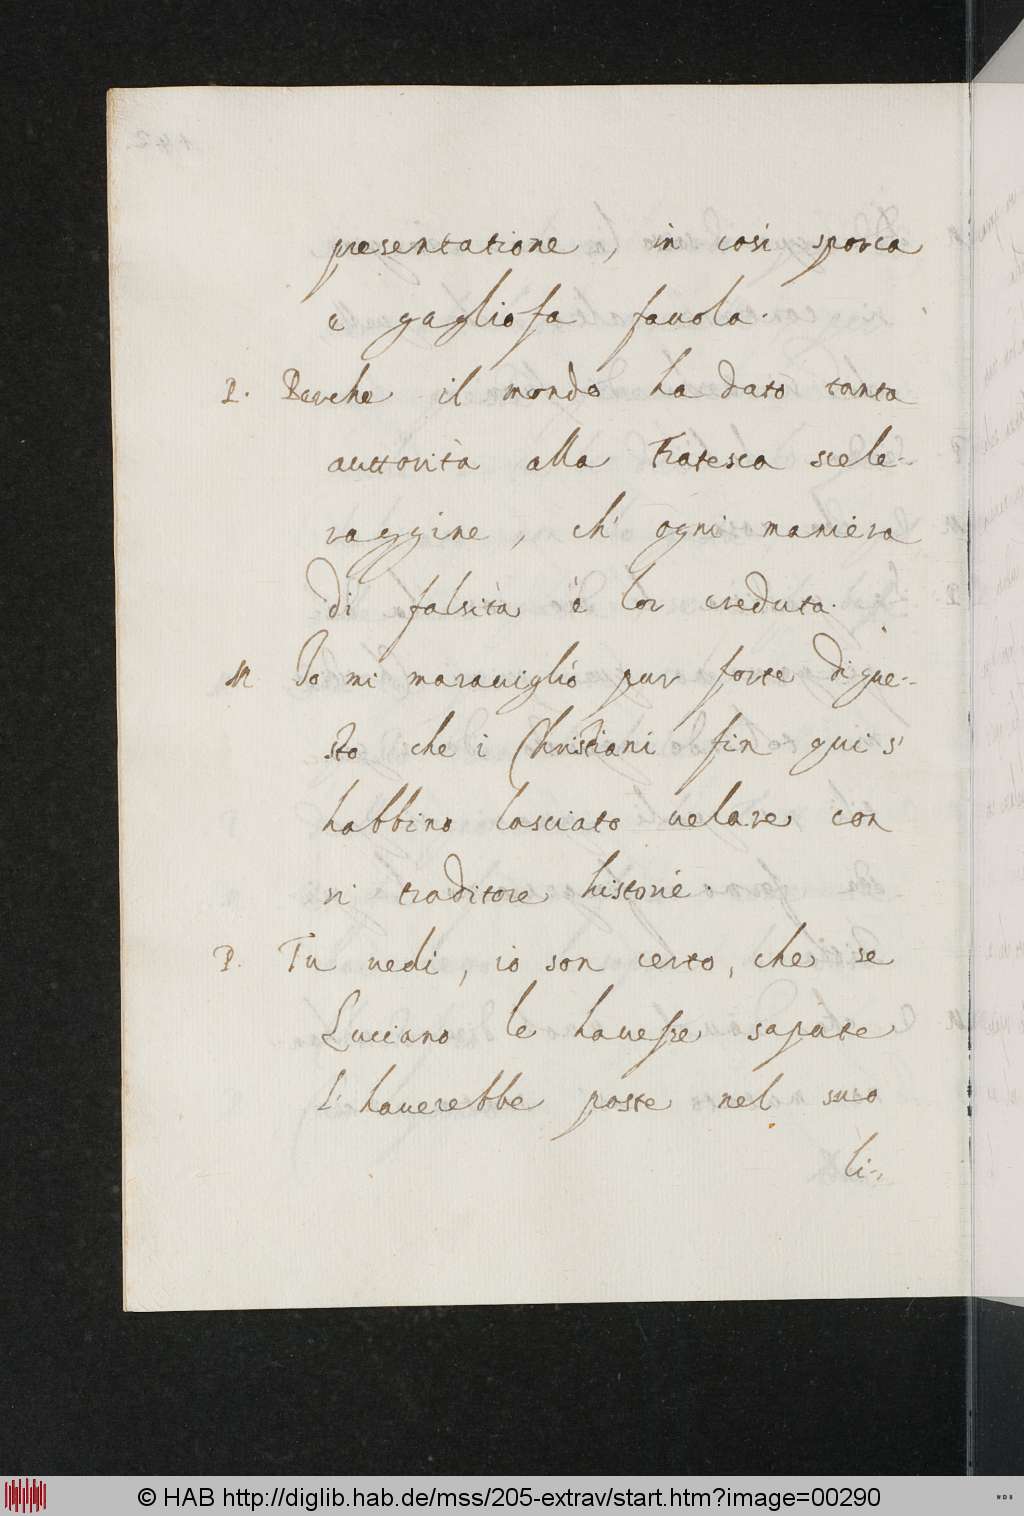 presentatione, in cosi sporca
e gagliofa fauola.
P. Perche il mondo ha dato tanta
auttorità alla Fratesca scele-
raggine, ch' ogni maniera
di falsità è lor creduta.
M Io mi marauiglio pur forte di que-
sto che i Christiani fin qui s'
habbino lasciato uelare con
si traditore historie.
P. Tu uedi, io son certo, che se
Luciano le hauesse sapute
l' hauerebbe poste nel suo
li-
© HAB http://diglib.hab.de/mss/205-extrav/start.htm?image=00290